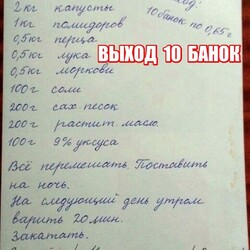 2кг капусты
1кг помидоров
0,5кг перца
0,5кг лука
0,5кг моркови
100г соли
200г сах. песок
200г растит. масло.
100г 9% уксуса
10 банок по 0,65г
ВЫХОД 10 БАНОК
Всё перемешать. Поставить
на ночь.
На следующий день утром
варить 20 мин.
Закатать.